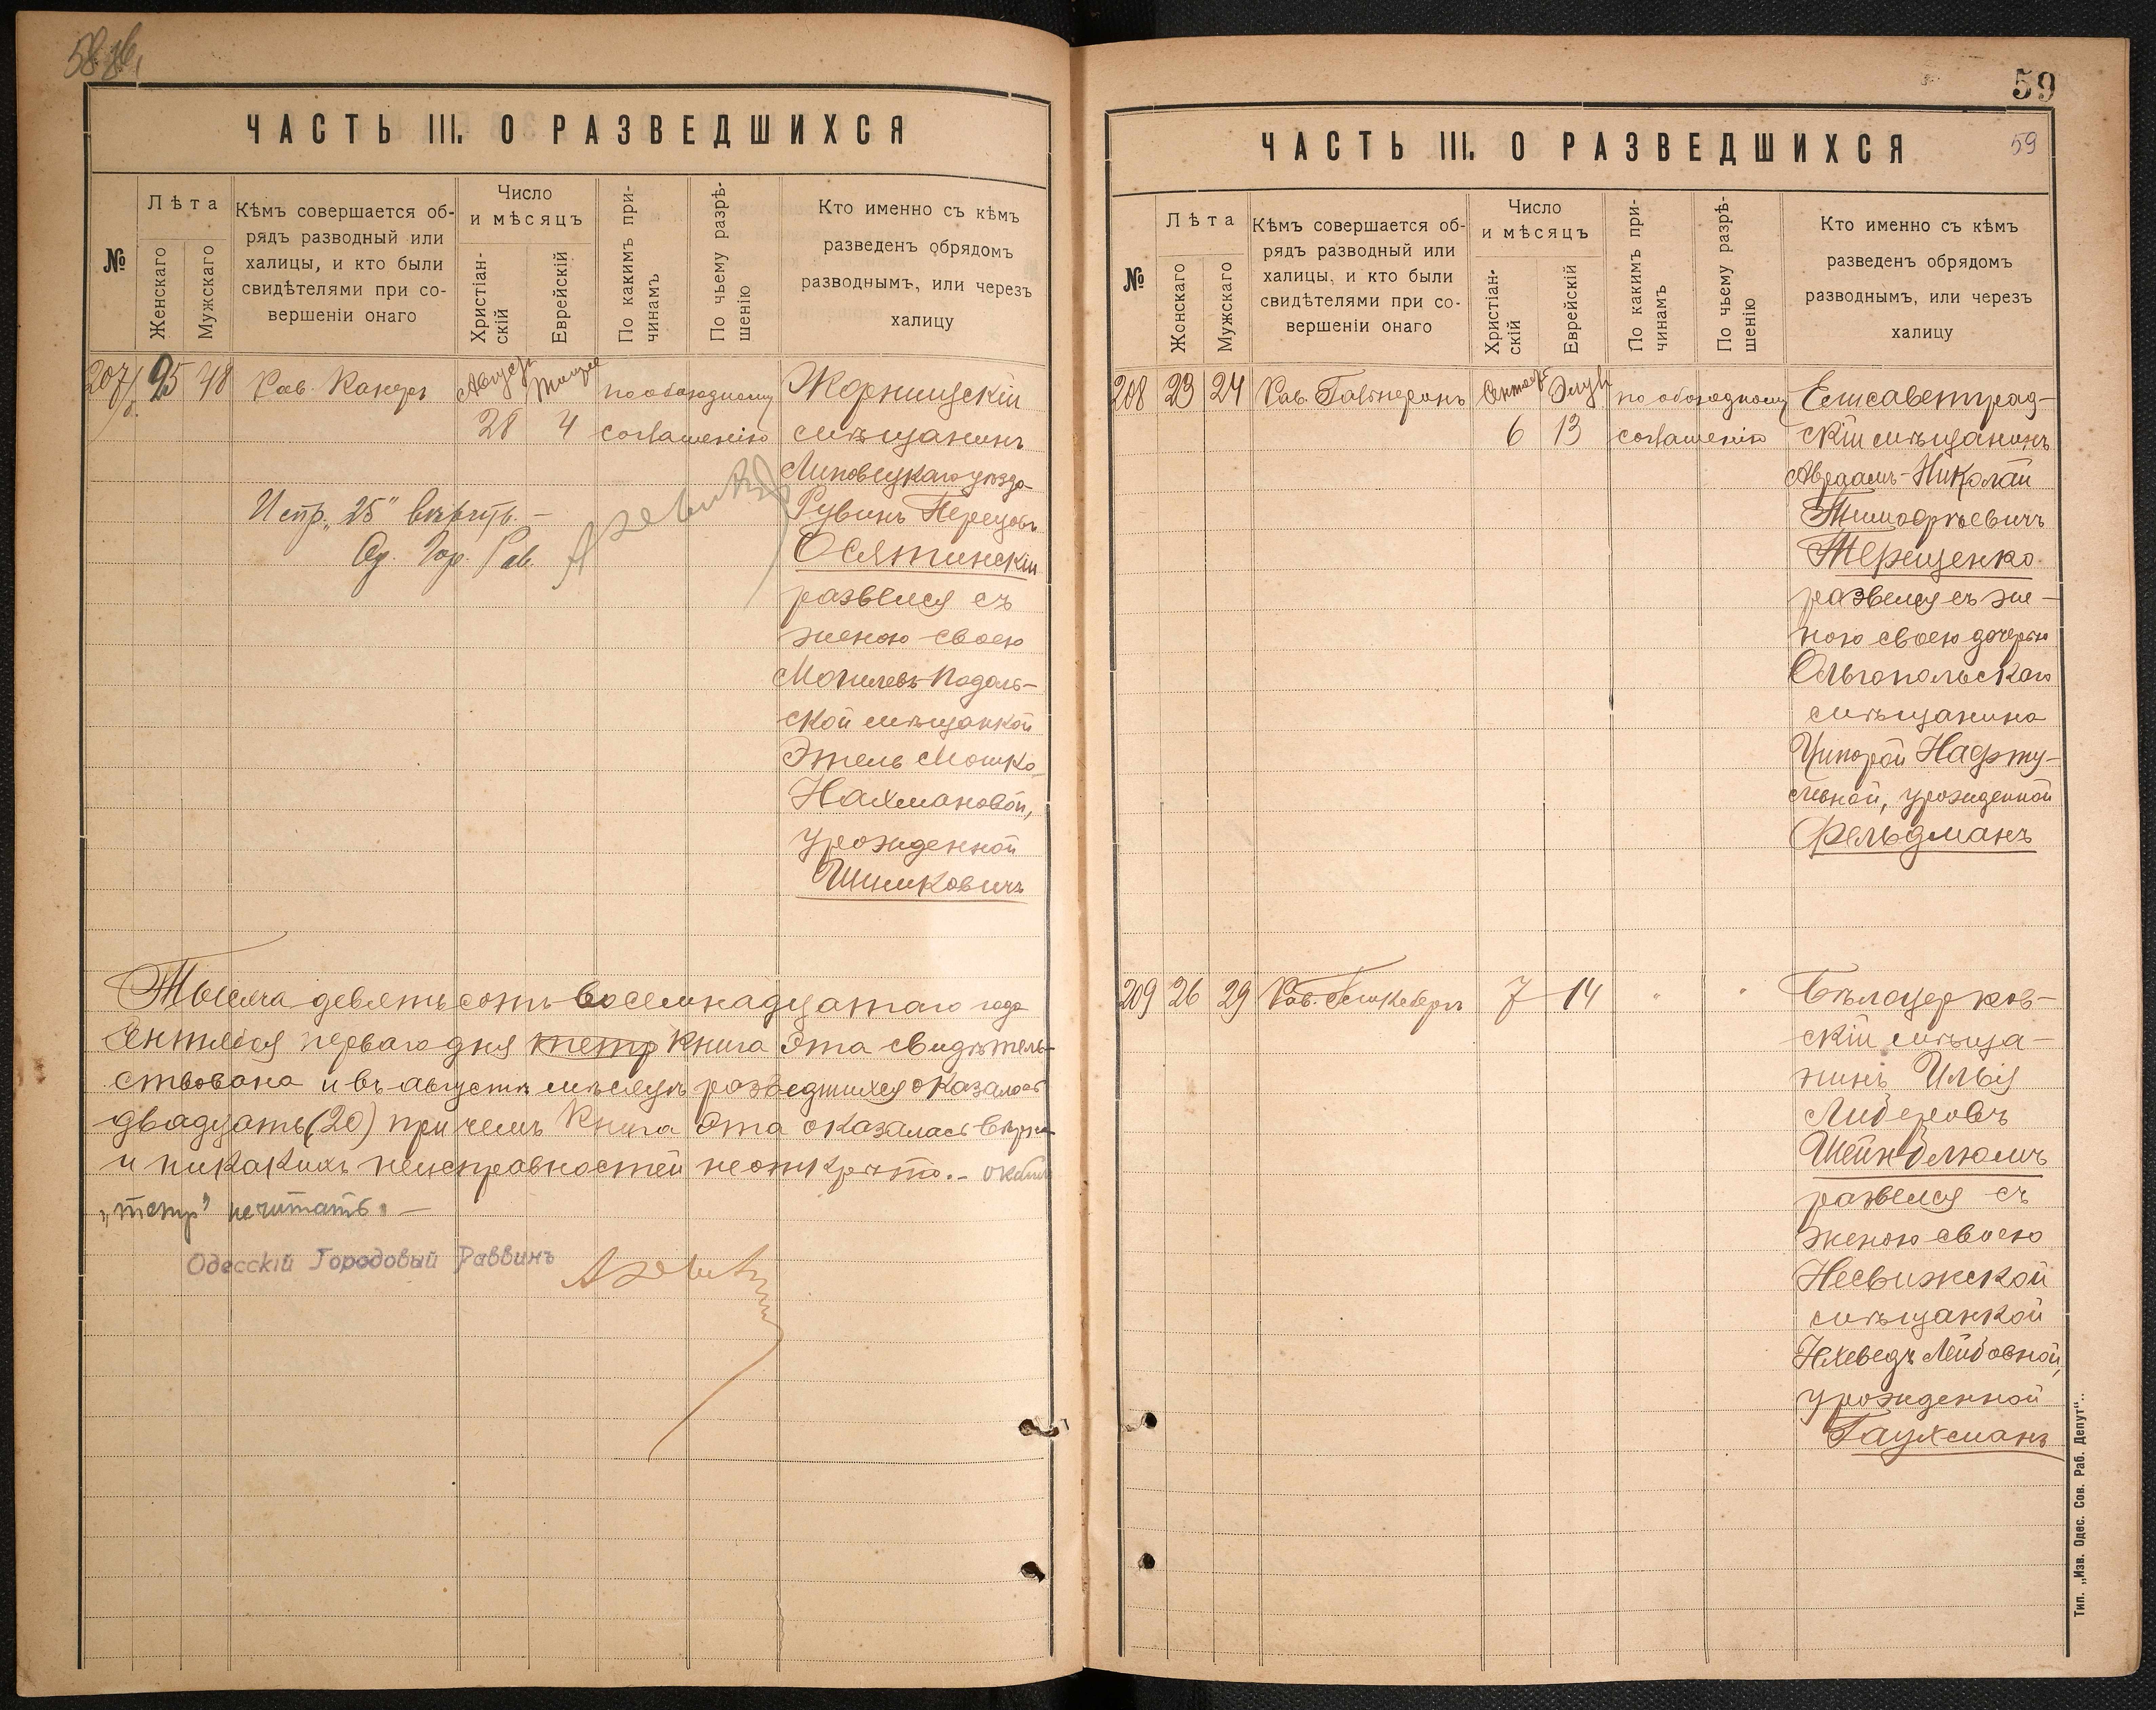 58 об.
ЧАСТЬ III. О РАЗВЕДШИХСЯ
№
Лѣта
Женскаго
Мужскаго
Кѣмъ совершается об-
рядъ разводный или
халицы, и кто были
свидѣтелями при со-
вершеніи онаго
Число
и мѣсяцъ
Христіан-
скій
Еврейскій
По какимъ при-
чинамъ
По чьему разрѣ-
шенію
Кто именно съ кѣмъ
разведенъ обрядомъ
разводнымъ, или черезъ
халицу
207 25 48 Рав. Августъ по обоюдному Жорнищскій
28 4 соглашенію мѣщанинъ
Липовецкаго уѣзда
Рувинъ Перецовъ
Осятинскій
развелся съ
женою своею
Могилевъ-Подоль-
ской мѣщанкой
Этель Мошко-
Нахмановой,
урожденной
Шимковичъ
Испр. „25" вѣрить. —
Од. Гор. Рав.
Тысяча девятьсотъ восемнадцатаго года
Сентября перваго дня тетр книга эта свидѣтель-
ствована и въ августѣ мѣсяцѣ разведшихся оказалось
двадцать (20) при чемъ книга эта оказалась вѣрна
и никакихъ неисправностей не открыто.-
„тетр" не читать. —
Одесскій Городовый Раввинъ
59
ЧАСТЬ III. О РАЗВЕДШИХСЯ
59
№
Лѣта
Жонскаго
Мужскаго
Кѣмъ совершается об-
рядъ разводный или
халицы, и кто были
свидѣтелями при со-
вершеніи онаго
Число
и мѣсяцъ
Христіан-
скій
Еврейскій
По какимъ при-
чинамъ
По чьему разрѣ-
шенію
Кто именно съ кѣмъ
разведенъ обрядомъ
разводнымъ, или черезъ
халицу
208 23 24 Рав. Гальперинъ Сентябр Элулъ по обоюдному Елисаветград-
6 13 соглашенію скій мѣщанинъ
Авраамъ-Николай
Тимофѣевичъ
Терещенко
развелся съ же-
ною своею дочерью
Ольгопольскаго
мѣщанина
Ципорой Нафту-
левной, урожденной
Фельдманъ
209 26 29 Рав. 7 14 " " Бѣлоцерков-
скій мѣща-
нинъ Илья
Либеровъ
Шейнблюмъ
развелся съ
женою своею
Несвижской
мѣщанкой
Лейбовной,
урожденной
Гаухманъ
Тип. „Изв. Одес. Сов. Раб. Депут".